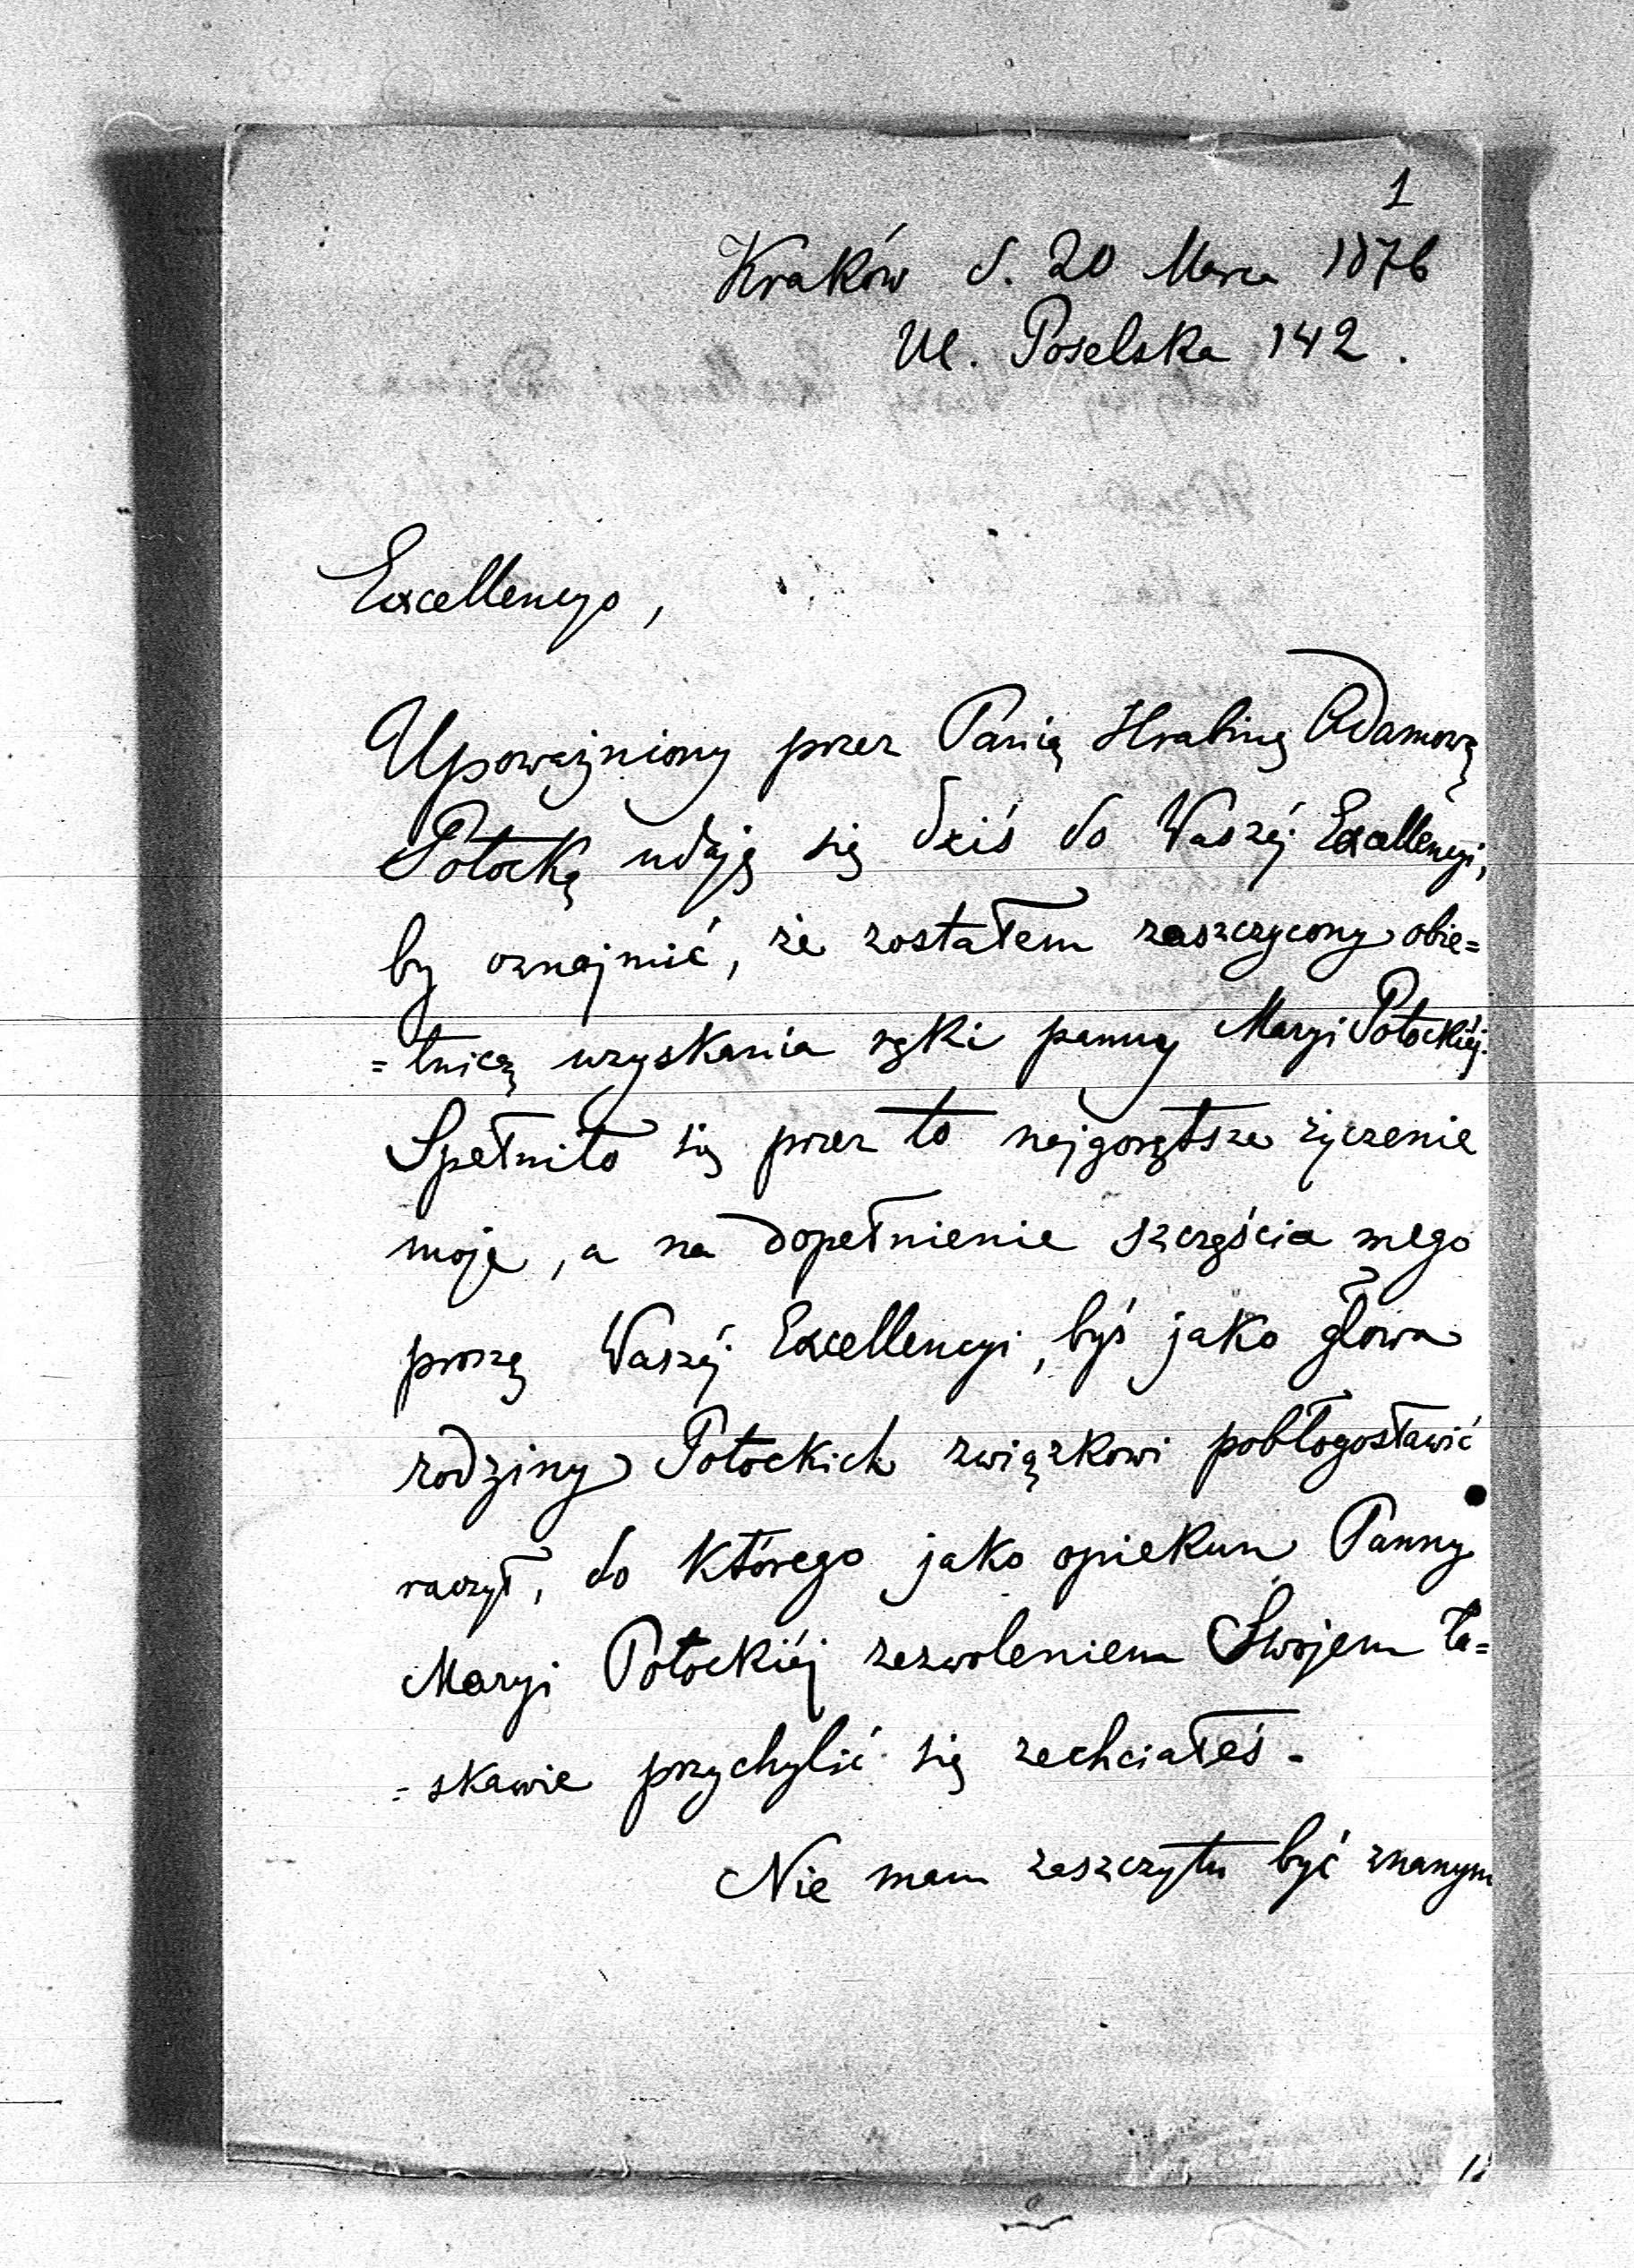 1
Kraków d. 20 Marca 1876
Ul. Poselska 142.
Excellencyo,
Upoważniony przez Panią Hrabinę Adamową
Potocką udaję się dziś do Waszéj Excellencyi,
by oznajmić, że zostałem zaszczycony obie=
=tnicą uzyskania ręki panny Maryi Potockiéj.
Spełniło się przez to najgorętsze życzenie
moje, a na dopełnienie szczęścia mego
proszę Waszéj Excellencyi, byś jako głowa
rodziny Potockich związkowi pobłogosławić
raczył, do którego jako opiekun Panny
Maryi Potockiéj zezwoleniem Swojem ła=
=skawie przychylić się zechciałeś.
Nie mam zaszczytu być znanym